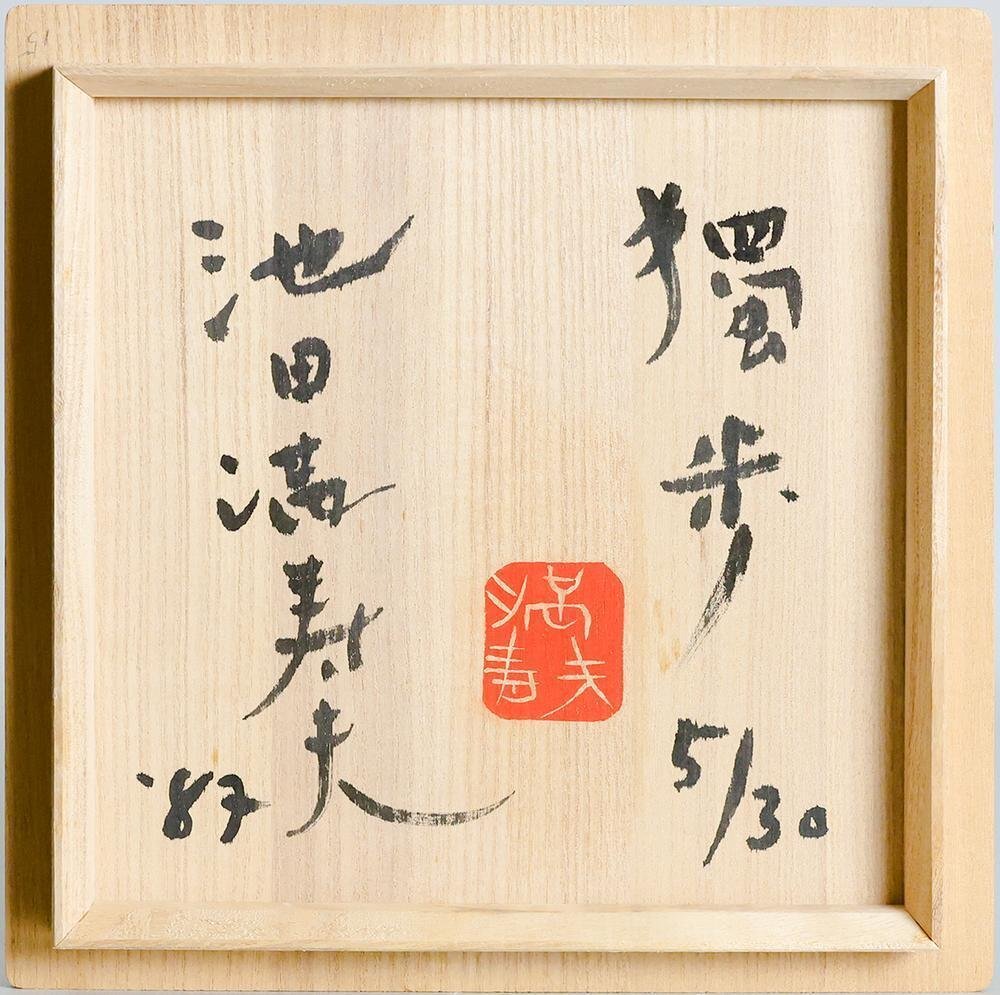 獨歩
5/30
池田満寿夫
'87
満寿夫